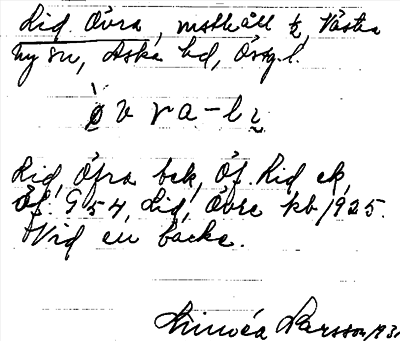 Lid, Övra, mothåll ½, Västra
ny sn, Aska hd, Ösg. l.
övra-li
Lid, Öfra bek, Öf. Lid ek,
Öf. G 54, Lid, Övre kb 1925.
Vid en backe.
Linnéa Larsson 193